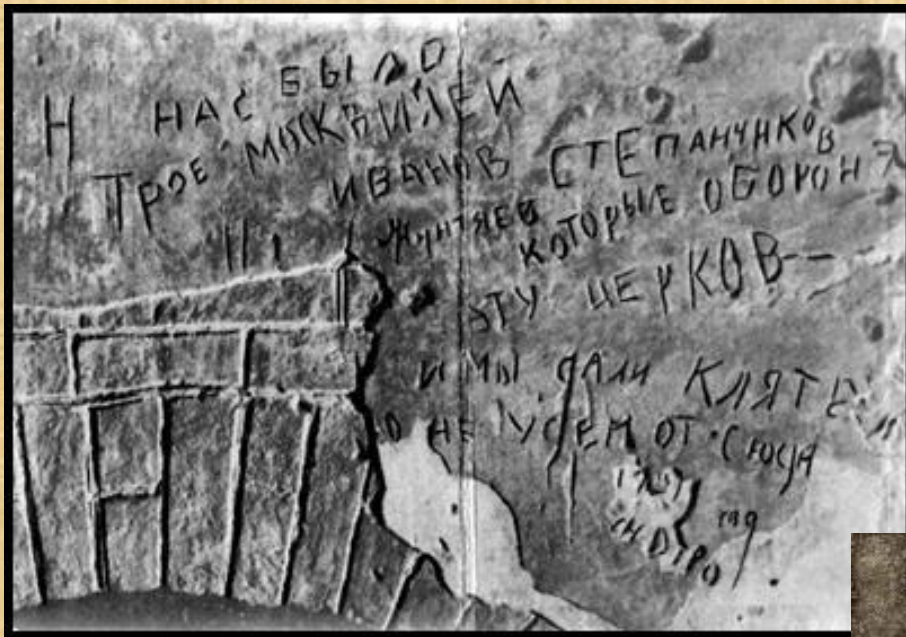 Н НАС БЫЛО
ТРОЕ МОСКВИЧЕЙ
ИВАНОВ СТЕПАНЧИКОВ
ЖУНТЯЕВ КОТОРЫЕ ОБОРОНЯ
ЭТУ ЦЕРКОВ
И МЫ ДАЛИ КЛЯТВ
НЕ УЙДЕМ ОТСЮДА